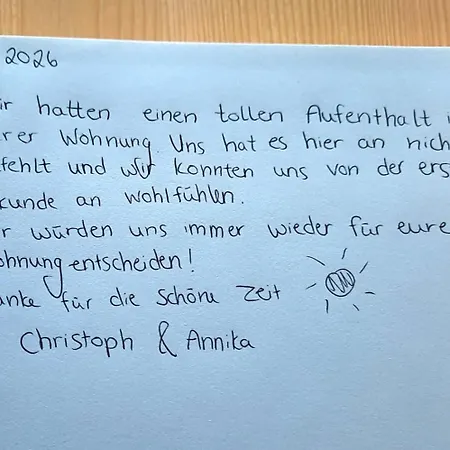 2026
ir hatten einen tollen Aufenthalt i
urer Wohnung. Uns hat es hier an nich
fehlt und wir konnten uns von der ers
kunde an wohlfühlen.
r würden uns immer wieder für eure
ohnung entscheiden!
anke für die schöne Zeit
Christoph & Annika